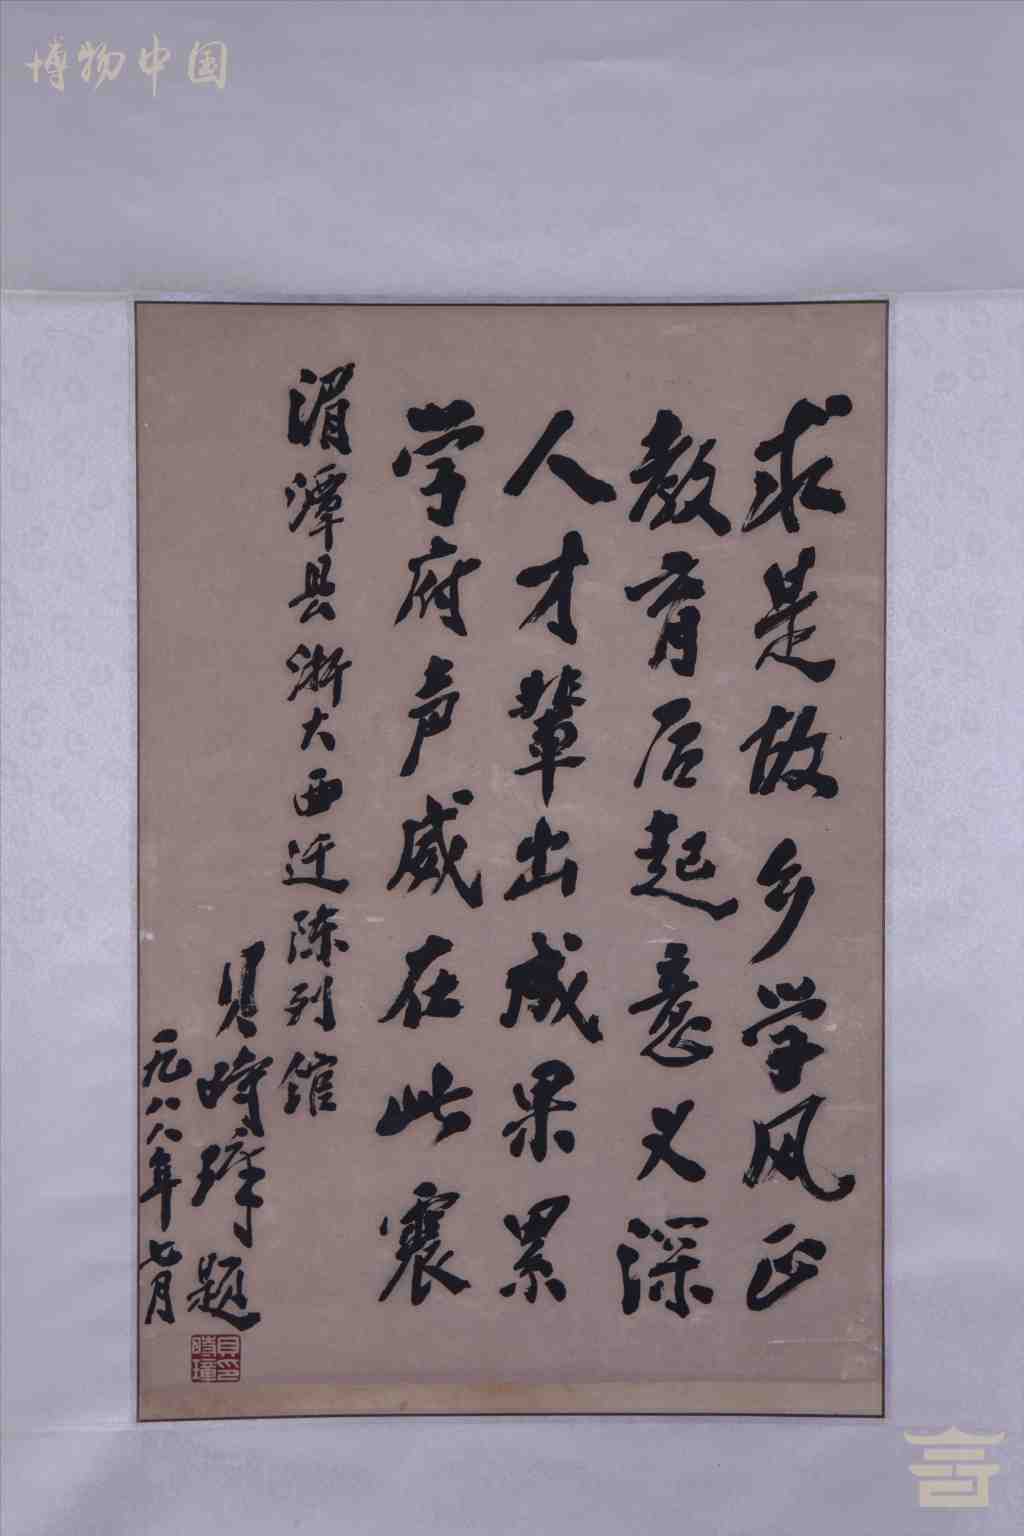 博物中国
求是故乡学风正
教育后起意义深
人才辈出成果累
学府声威在此震
湄潭县浙大西迁陈列馆
贝时璋题
一九八八年七月
貝时璋印